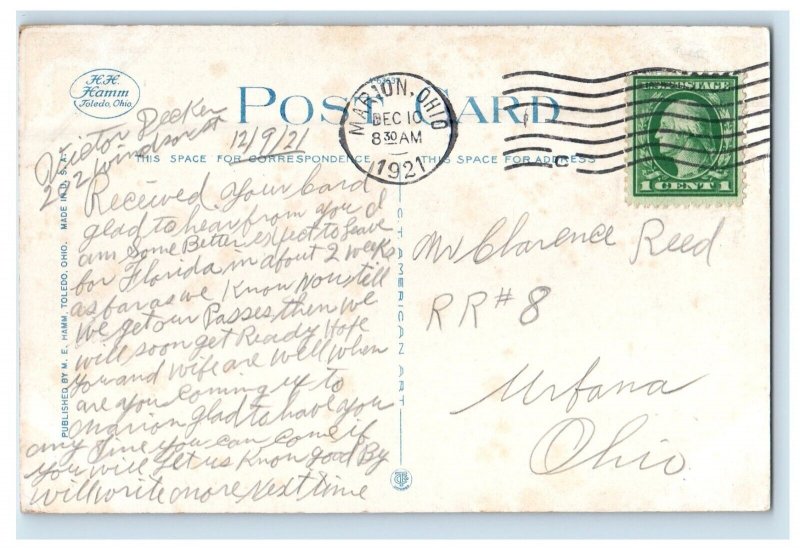 H.H.
Hamm
Toledo, Ohio.
POST CARD
MARION, OHIO
DEC 10
8 30 AM
1921
U.S. POSTAGE
1 CENT 1
C
THIS SPACE FOR CORRESPONDENCE
THIS SPACE FOR ADDRESS
MADE IN U.S.A.
PUBLISHED BY M. E. HAMM, TOLEDO, OHIO.
CT AMERICAN ART
Victor Decker
202 Windsor st
12/9/21
Received your Card
glad to hear from you I
am Some Better expect to leave
for Florida in about 2 weeks
as far as we Know Now till
we get our Passes, then we
will soon get Ready Hope
you and wife are well when
are you Coming up to
Marion glad to have you
any time you can Come if
you will Let us Know good By
will write more Next time
Mr Clarence Reed
RR # 8
Urbana
Ohio